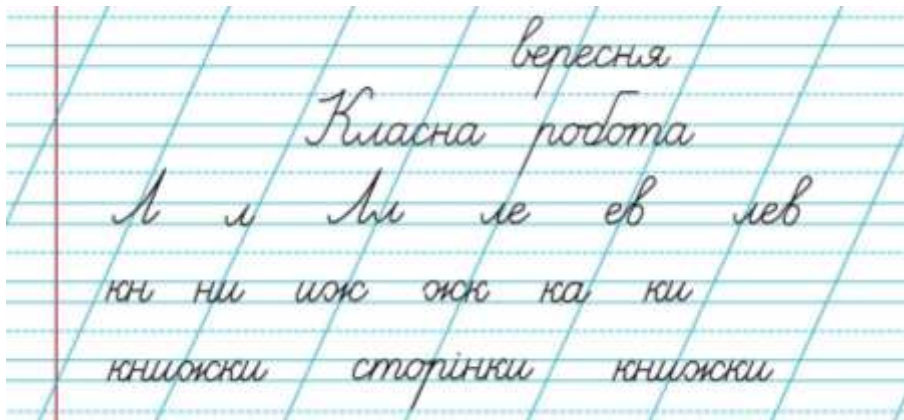 вересня
Класна робота
Л л Лл ле ев лев
кн ни иж жк ка ки
книжки сторінки книжки